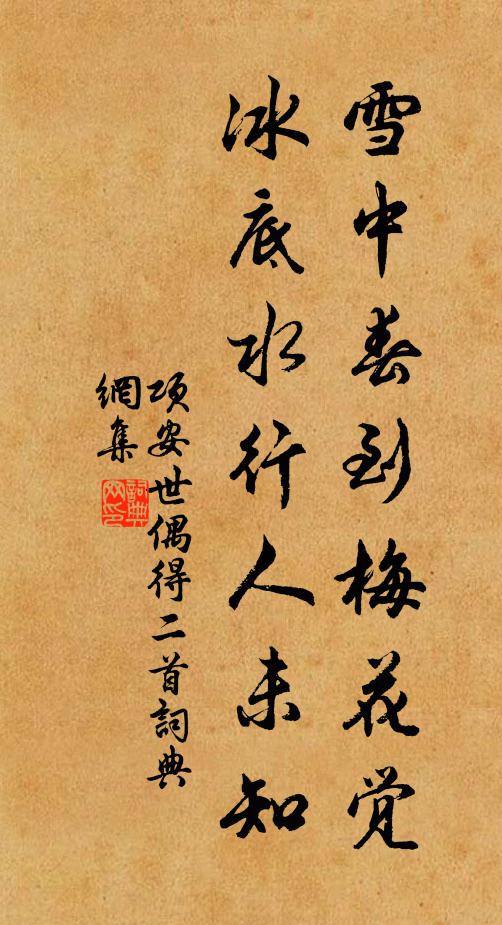 雪中春到梅花觉
冰底水行人未知
项安世偶得二首詞典
網集
詞典
网印